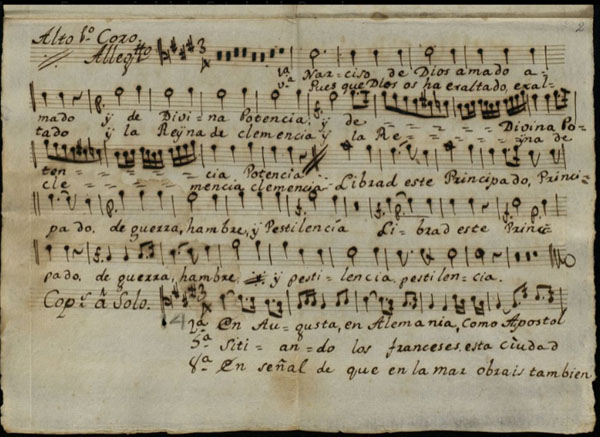 2
Alto 1.º Coro.
Alleg.tto
3
1ª Nar=ciso, de Dios amado a=
v.ª Pues que Dios os ha exaltado, exal=
mado y de Divi=na Potencia, y de Divina Po=
tado y la Reyna de clemencia y la Re= =yna de
ten= =cia Potencia
cle= =mencia, clemencia Librad este Principado, Princi=
pado, de guerra, hambre, y Pestilencia Li=brad este Princi=
pado, de guerra, hambre, y pesti=lencia, pestilen=cia.
Cop.s â Solo. 3
4
2ª En Au=gusta, en Alemania, como Apostol
5ª Siti=an=do los franceses, esta ciudad
8ª En señal de que en la mar obrais tambien